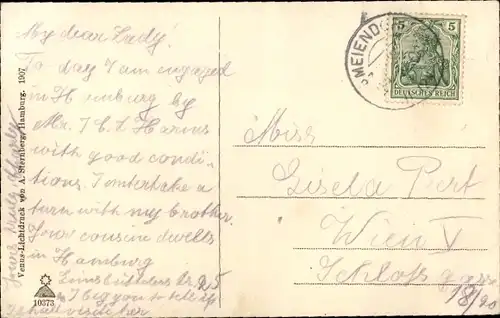 My dear Lady!
To day I am engaged
in Hamburg by
Mr. J & Z Harms
with good condi-
tions. I untertake a
turn with my brother.
Your cousin dwells
in Hamburg
25
I beg you to tell if
I shall visit her
Yours
Venus-Lichtdruck von A. Sternberg, Hamburg. 1907
10373
MEIENDO
5 5
DEUTSCHES REICH
Miss
Gisela
Wien V
Schlossgasse
18/20